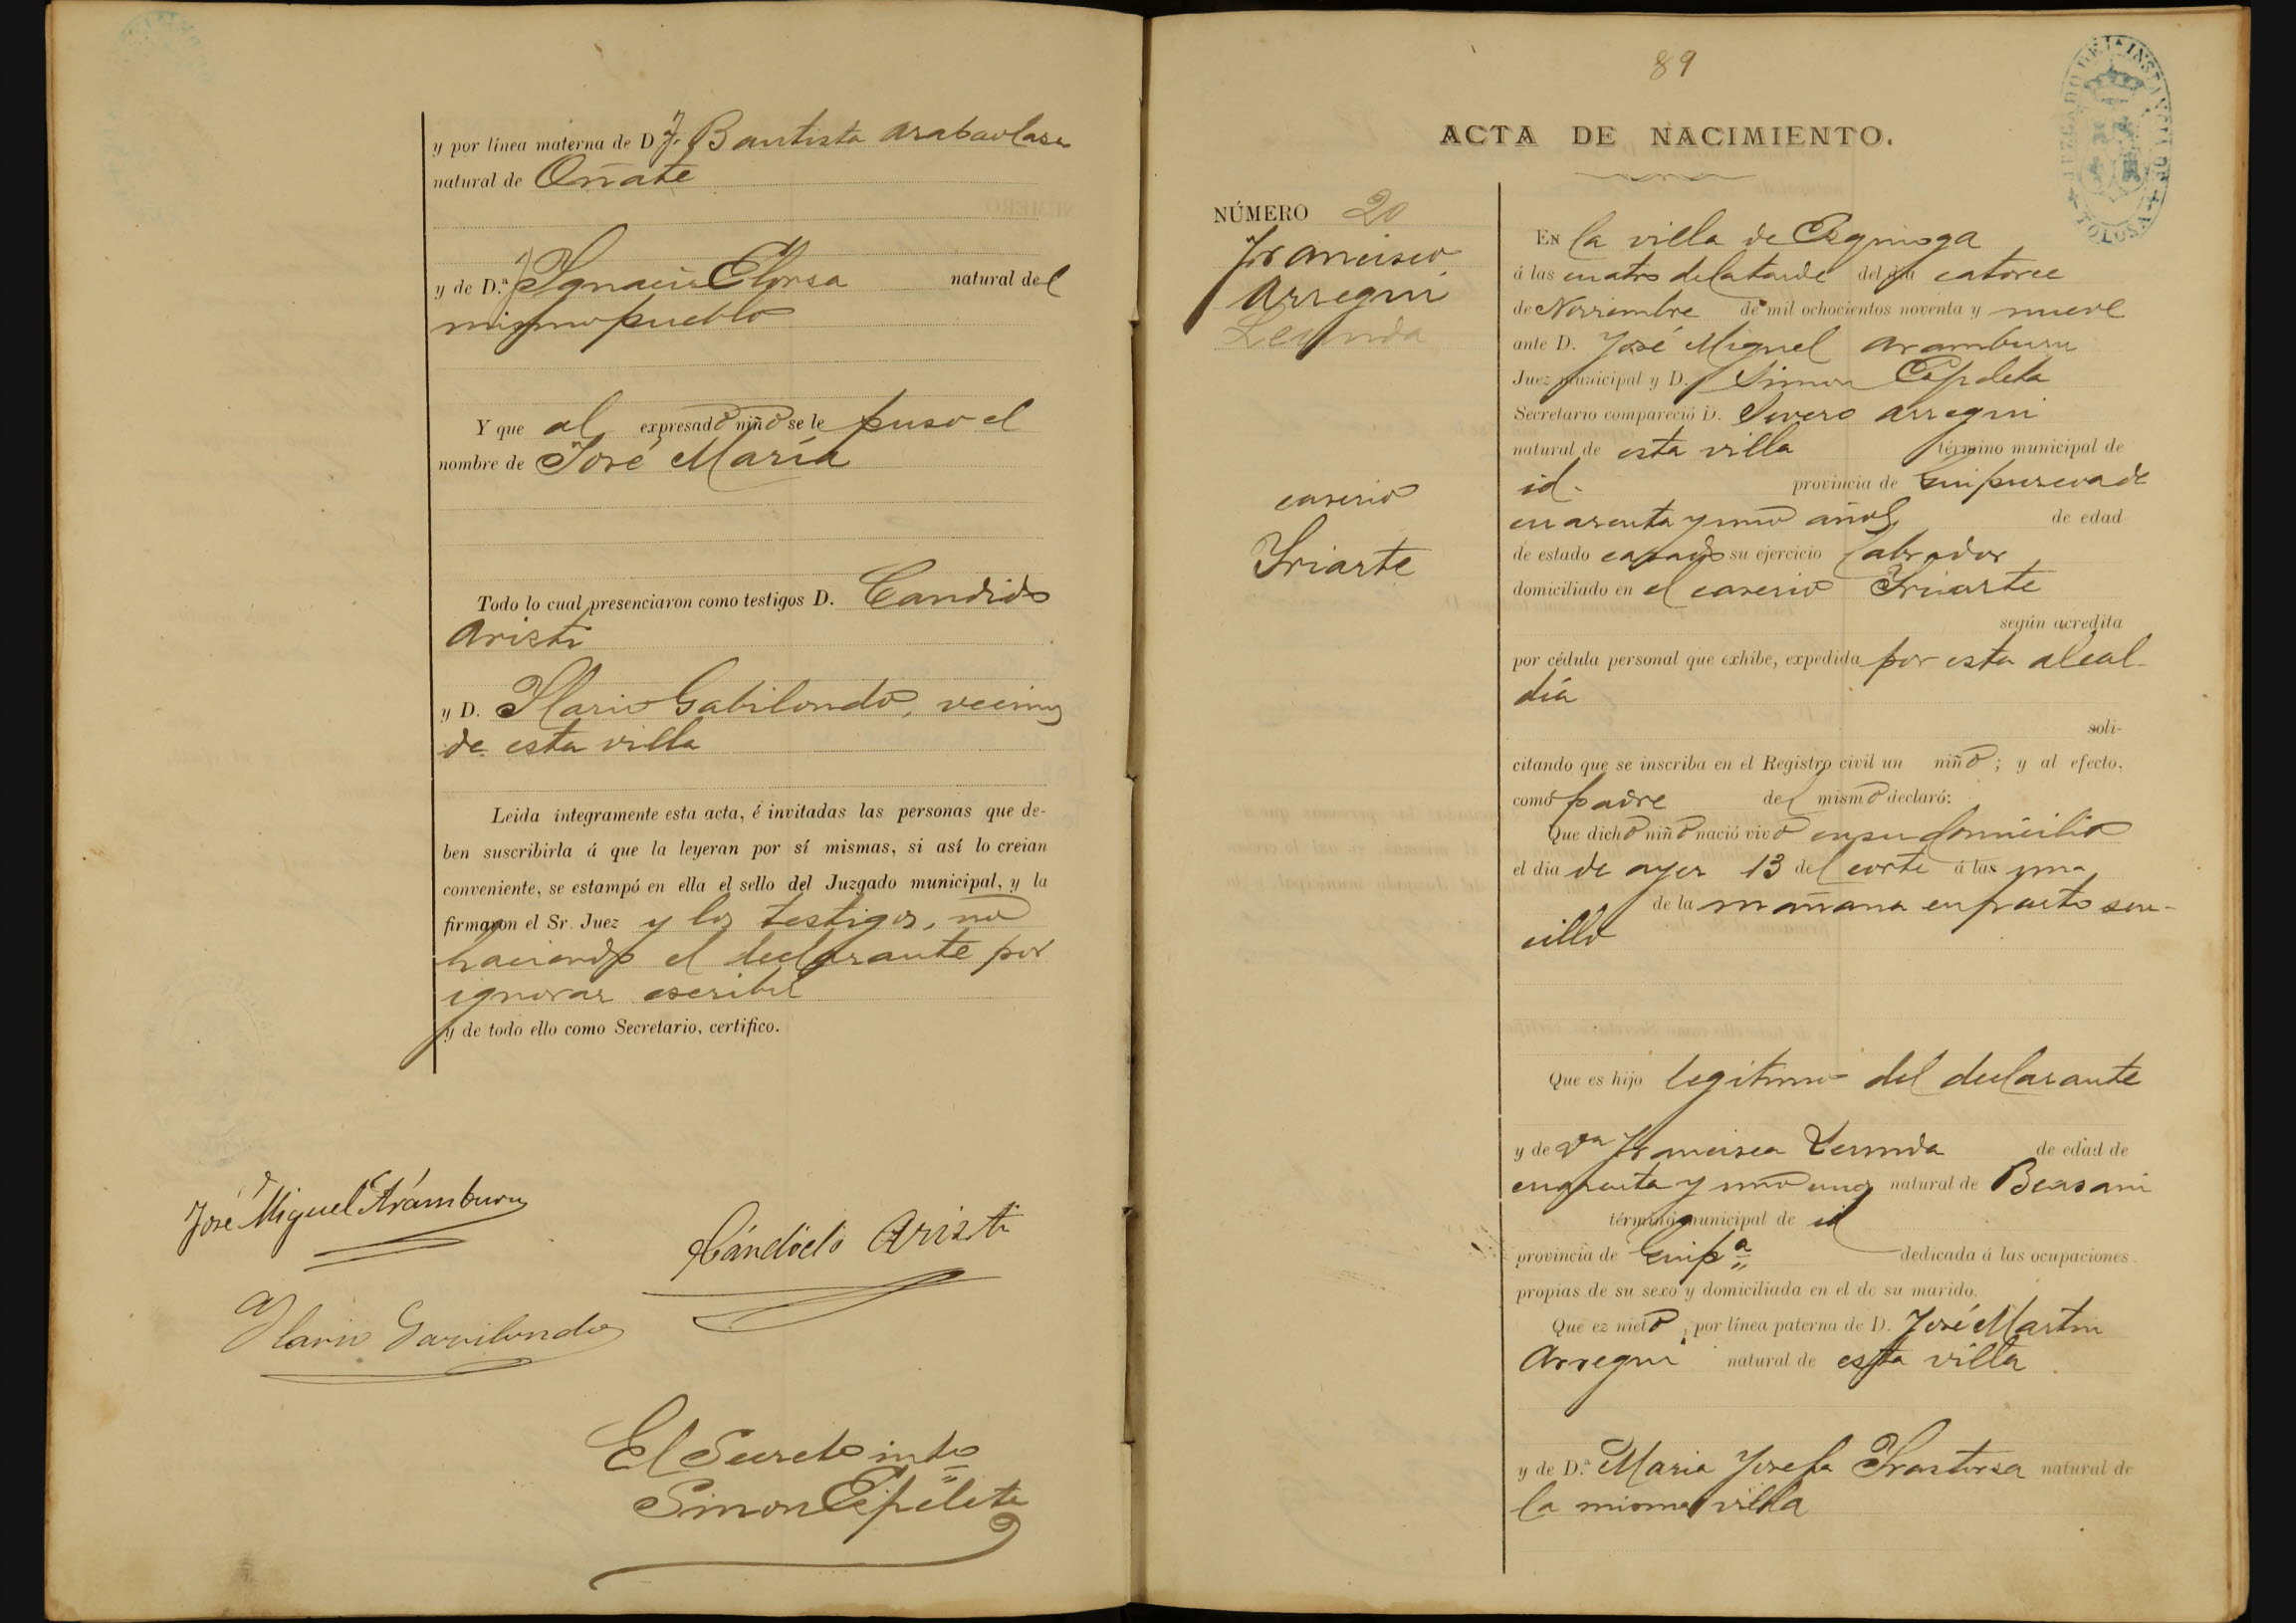 y por línea materna de D. J. Bautista Arabaolasa
natural de Oñate
y de D.ª Ygnacia Elorsa natural del
mismo pueblo
Y que al expresado niño se le puso el
nombre de José María
Todo lo cual presenciaron como testigos D. Candido
Aristi
y D. Ylario Gabilondo, vecinos
de esta villa
Leida íntegramente esta acta, é invitadas las personas que de-
ben suscribirla á que la leyeran por sí mismas, si así lo creian
conveniente, se estampó en ella el sello del Juzgado municipal, y la
firmaron el Sr. Juez y los testigos, no
haciendo el declarante por
ignorar escribir
y de todo ello como Secretario, certifico.
José Miguel Arámburu
Cándido Aristi
Ylario Gavilondo
El Secretº intº
Simon Ezpeleta
89
JUZGADO DE 1ª INSTANCIA DE TOLOSA
ACTA DE NACIMIENTO.
NÚMERO 20
Francisco
Arregui
Lecunda
caserio
Yriarte
EN la villa de Ezquioga
á las cuatro de la tarde del dia catorce
de Noviembre de mil ochocientos noventa y nueve
ante D. José Miguel Aramburu
Juez municipal y D. Simon Ezpeleta
Secretario compareció D. Severo Arregui
natural de esta villa término municipal de
id. provincia de Guipuzcoa de
cuarenta y uno años de edad
de estado casado su ejercicio labrador
domiciliado en el caserio Yriarte
según acredita
por cédula personal que exhibe, expedida por esta alcal-
día
soli-
citando que se inscriba en el Registro civil un niño; y al efecto,
como padre del mismo declaró:
Que dicho niño nació vivo en su domicilio
el dia de ayer 13 del corte á las una
de la mañana en parto sen-
cillo
Que es hijo legitimo del declarante
y de Dª Francisca Lecunda de edad de
cuarenta y uno años natural de Beasain
término municipal de id
provincia de Guipª dedicada á las ocupaciones
propias de su sexo y domiciliada en el de su marido.
Que ez nieto, por línea paterna de D. José Martin
Arregui natural de esta villa
y de D.ª Maria Josefa Yrastorsa natural de
la misma villa